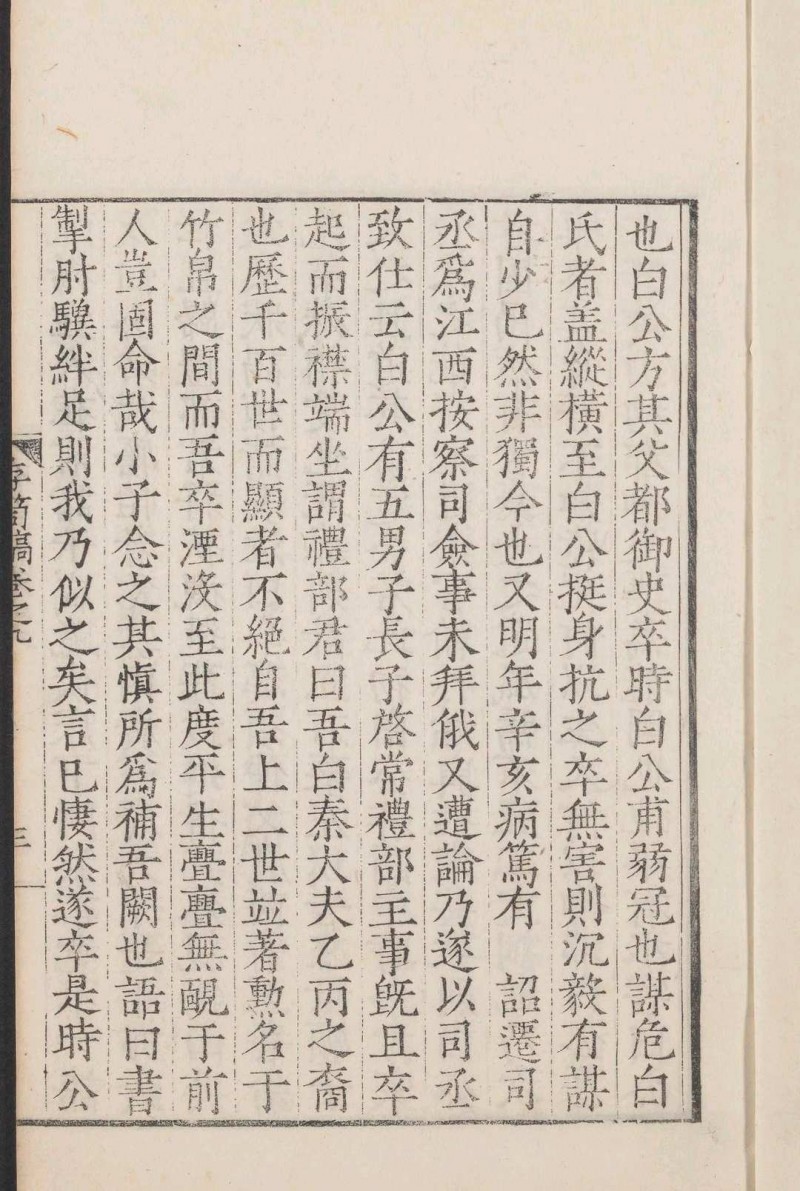 也白公方其父都御史卒時白公甫弱冠也謀危白
氏者盖縱橫至白公挺身抗之卒無害則沉毅有謀
自少已然非獨今也又明年辛亥病篤有　詔遷司
丞爲江西按察司僉事未拜俄又遭論乃遂以司丞
致仕云白公有五男子長子啓常禮部主事旣且卒
起而振襟端坐謂禮部君曰吾白秦大夫乙丙之裔
也歷千百世而顯者不絕自吾上二世並著勳名于
竹帛之間而吾卒湮沒至此度平生亹亹無覥于前
人豈固命哉小子念之其慎所爲補吾闕也語曰書
掣肘驥絆足則我乃似之矣言已悽然遂卒是時公
存笥稿卷之九
三